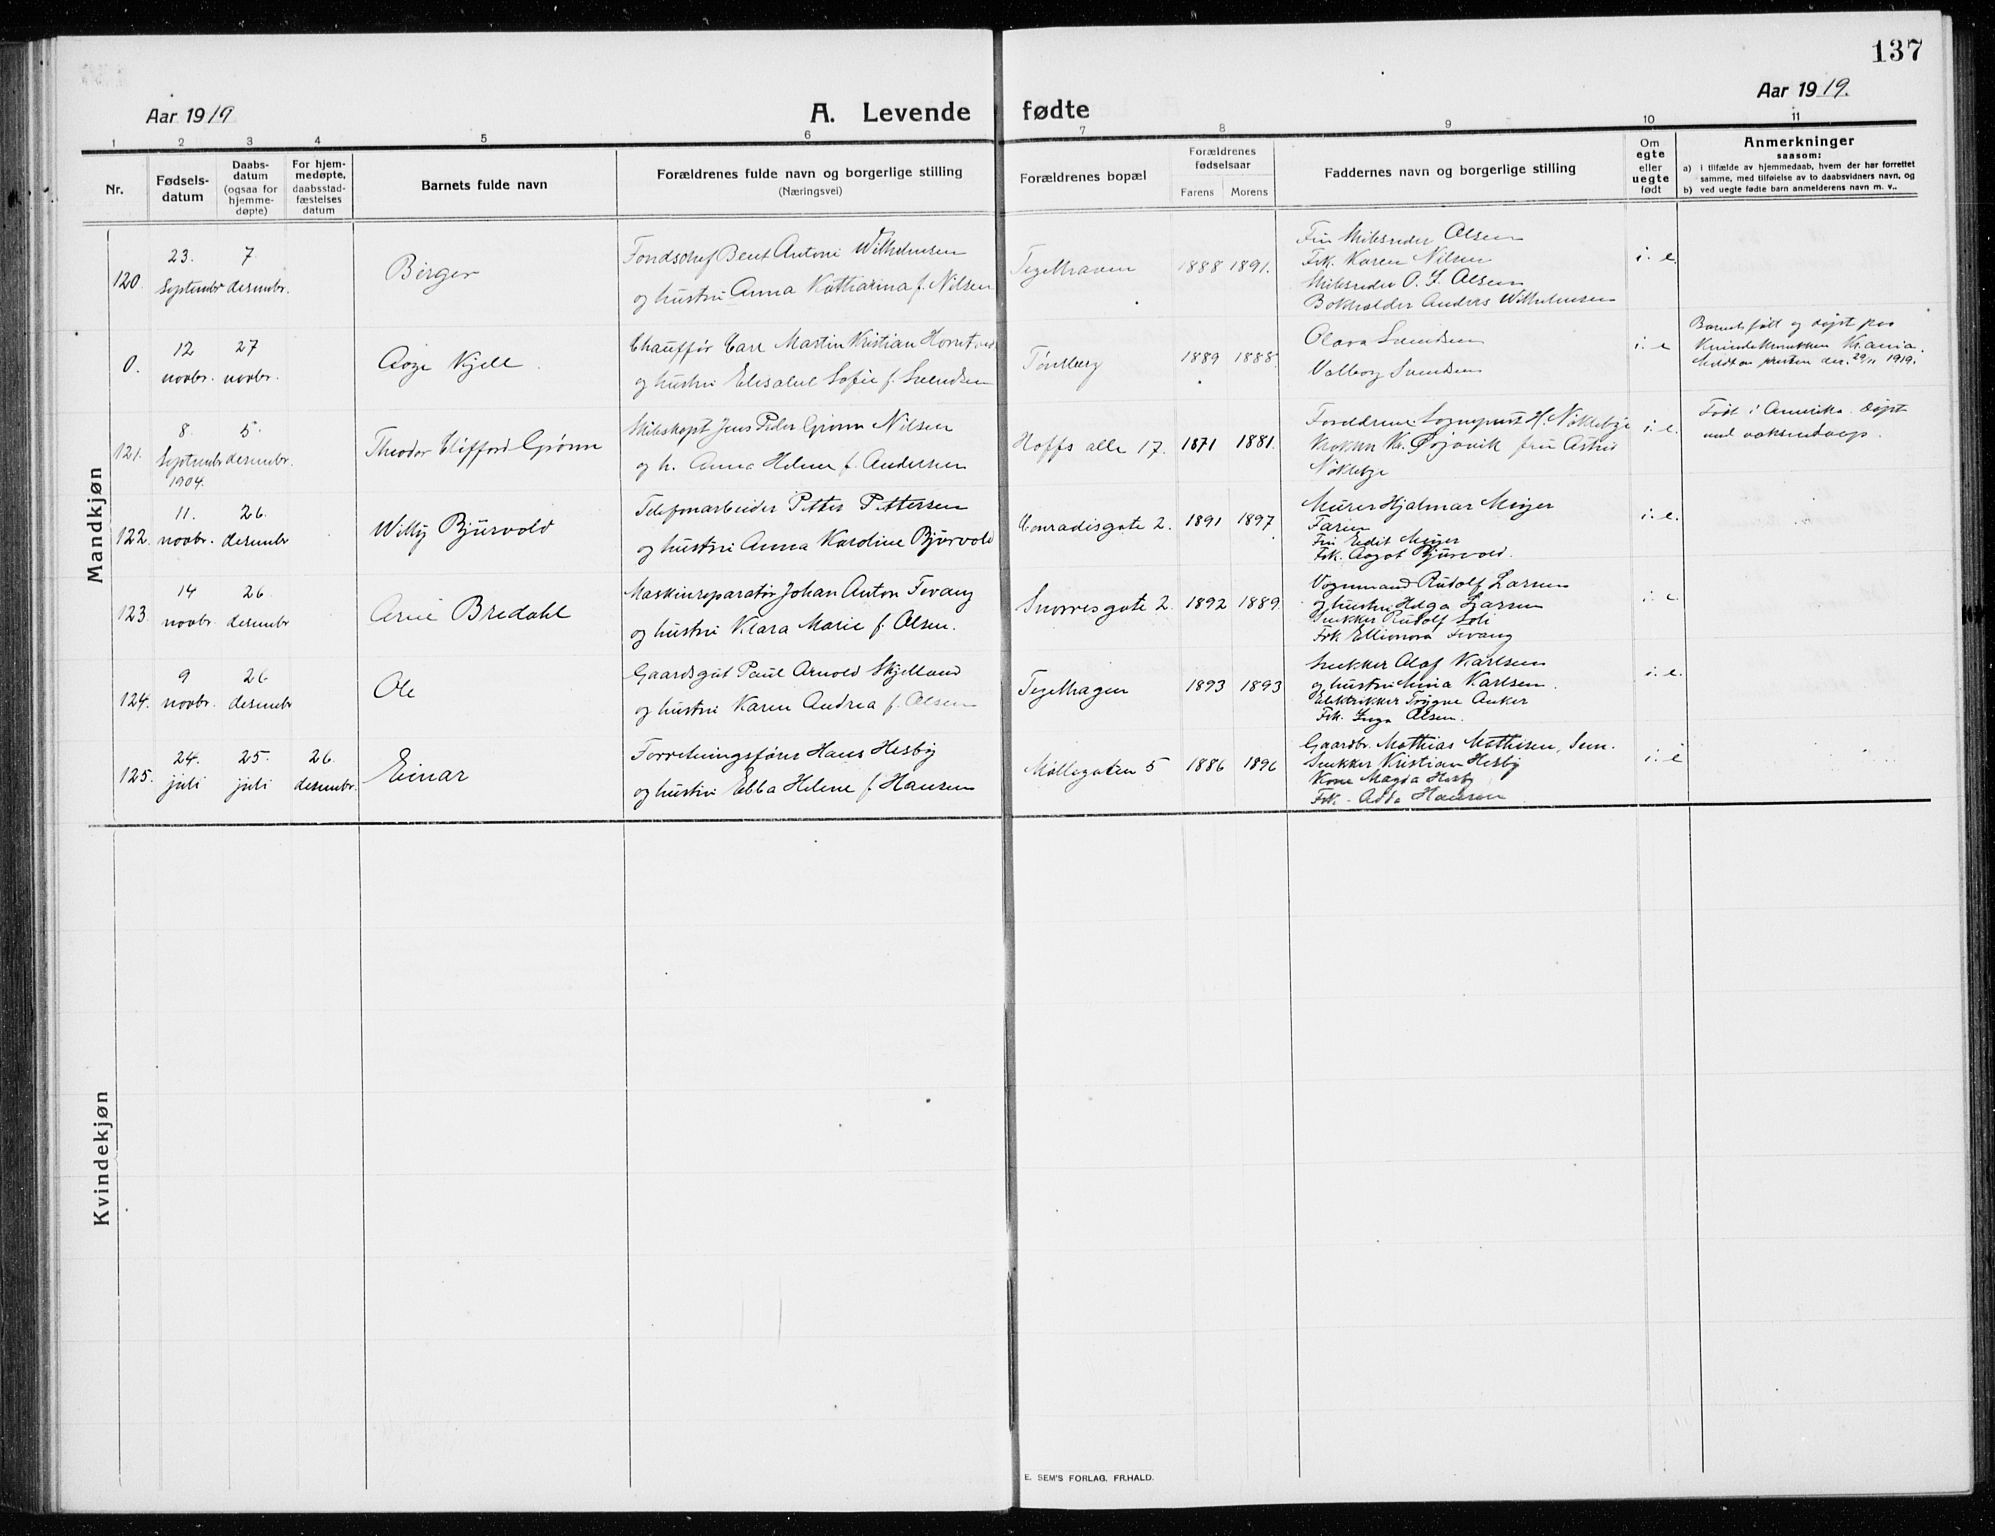 137
Aar 1919
A. Levende fødte
Aar 1919.
1 2 3 4 5 6 7 8 9 10 11
Nr.
Fødsels-
datum
Daabs-
datum
(ogsaa for
hjemme-
døpte)
For hjem-
medøpte,
daabsstad-
fæstelses
datum
Barnets fulde navn
Forældrenes fulde navn og borgerlige stilling
(Næringsvei)
Forældrenes bopæl
Forældrenes
fødselsaar
Farens Morens
Faddernes navn og borgerlige stilling
Om
egte
eller
uegte
født
Anmerkninger
saasom:
a) i tilfælde av hjemmedaab, hvem der har forrettet
samme, med tilføielse av to daabsvidners navn, og
b) ved uegte fødte barn anmelderens navn m. v..
Mandkjøn
120. 23. septembr 7 desembr. Birger
Fondschef Bent Antoni Wilhelmsen
og hustru Anna Katharina f. Nilsen
Teglhaven 1888 1891.
Fru Skibsreder Olsen
Frk. Karen Nilsen
Skibsreder O. Olsen
Bokholder Anders Wilhelmsen
i. e.
0. 12 novbr. 27 novbr. Aage Kjell.
Chauffør Carl Martin Kristian
og hustru Elisabet Sofie f. Svendsen
Tønsberg 1889 1888.
Olava Svendsen
Valborg Svendsen
i. e
Barnet født og døpt paa
Kvindeklinikken Kr.ania.
Meldt av presten der. 29/11 1919.
121. 8. septembr 1904. 5. desembr. Theodor Clifford Grønn
Skibskapt Jens Peder Grønn Nilsen
og h. Anna Helene f. Andersen
Hoffs alle 17. 1871 1881.
Forældrene Sogneprest H. Nøkleby
Klokker Kr. Gjøvik fru Astrid
Nøkleby
i. e.
Født i Amerika. Døpt
ved voksendaap.
122. 11. novbr. 26. desembr Willy Bjurvold
Telefonarbeider Petter Pettersen
og hustru Anna Karoline Bjurvold
Conradisgate 2. 1891 1897
Murer Hjalmar Meyer
Faren
Fru Edit Meyer
Frk. Aagot Bjurvold.
i. e.
123 14 novbr. 26. desembr Arne Bredahl
Maskinreparatør Johan Anton Tevang
og hustru Klara Marie f. Olsen.
Snorresgate 2. 1892 1889.
Vognmand Rudolf Larsen
og hustru Helga Larsen
Snekker Rudolf Soli
Frk. Ellionora Tevang
i. e.
124. 9 novbr. 26 desembr Ole
Gaardsgut Paul Arnold Skjelland
og hustru Karen Andrea f. Olsen
Teglhagen 1893 1893
Snekker Olaf Karlsen
og hustru Mina Karlsen.
Elektrikker Trygve Anker
Frk. Inga Olsen.
i. e.
125. 24. juli 25. juli 26 desembr. Einar
Forretningsfører Hans Hesby
og hustru Ebba Helene f. Hansen
Møllegaten 5 1886 1896
Gaardbr. Mathias Mathisen, Sem.
Snekker Kristian Hesby
Kone Magda Hesby
Frk. Adda Hansen
i. e
Kvindekjøn
E. SEM'S FORLAG, FR.HALD.